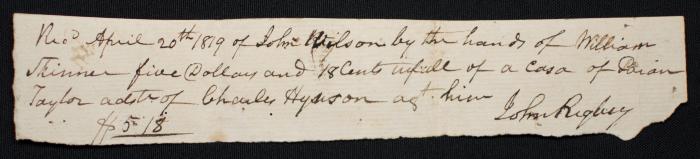 Rec.d April 20th 1819 of John Wilson by the hands of William
Skinner five Dollars and 18 Cents in full of a casa of Brian
Taylor adstr of Charles Hynson agt him
$5.18
John Rigbey